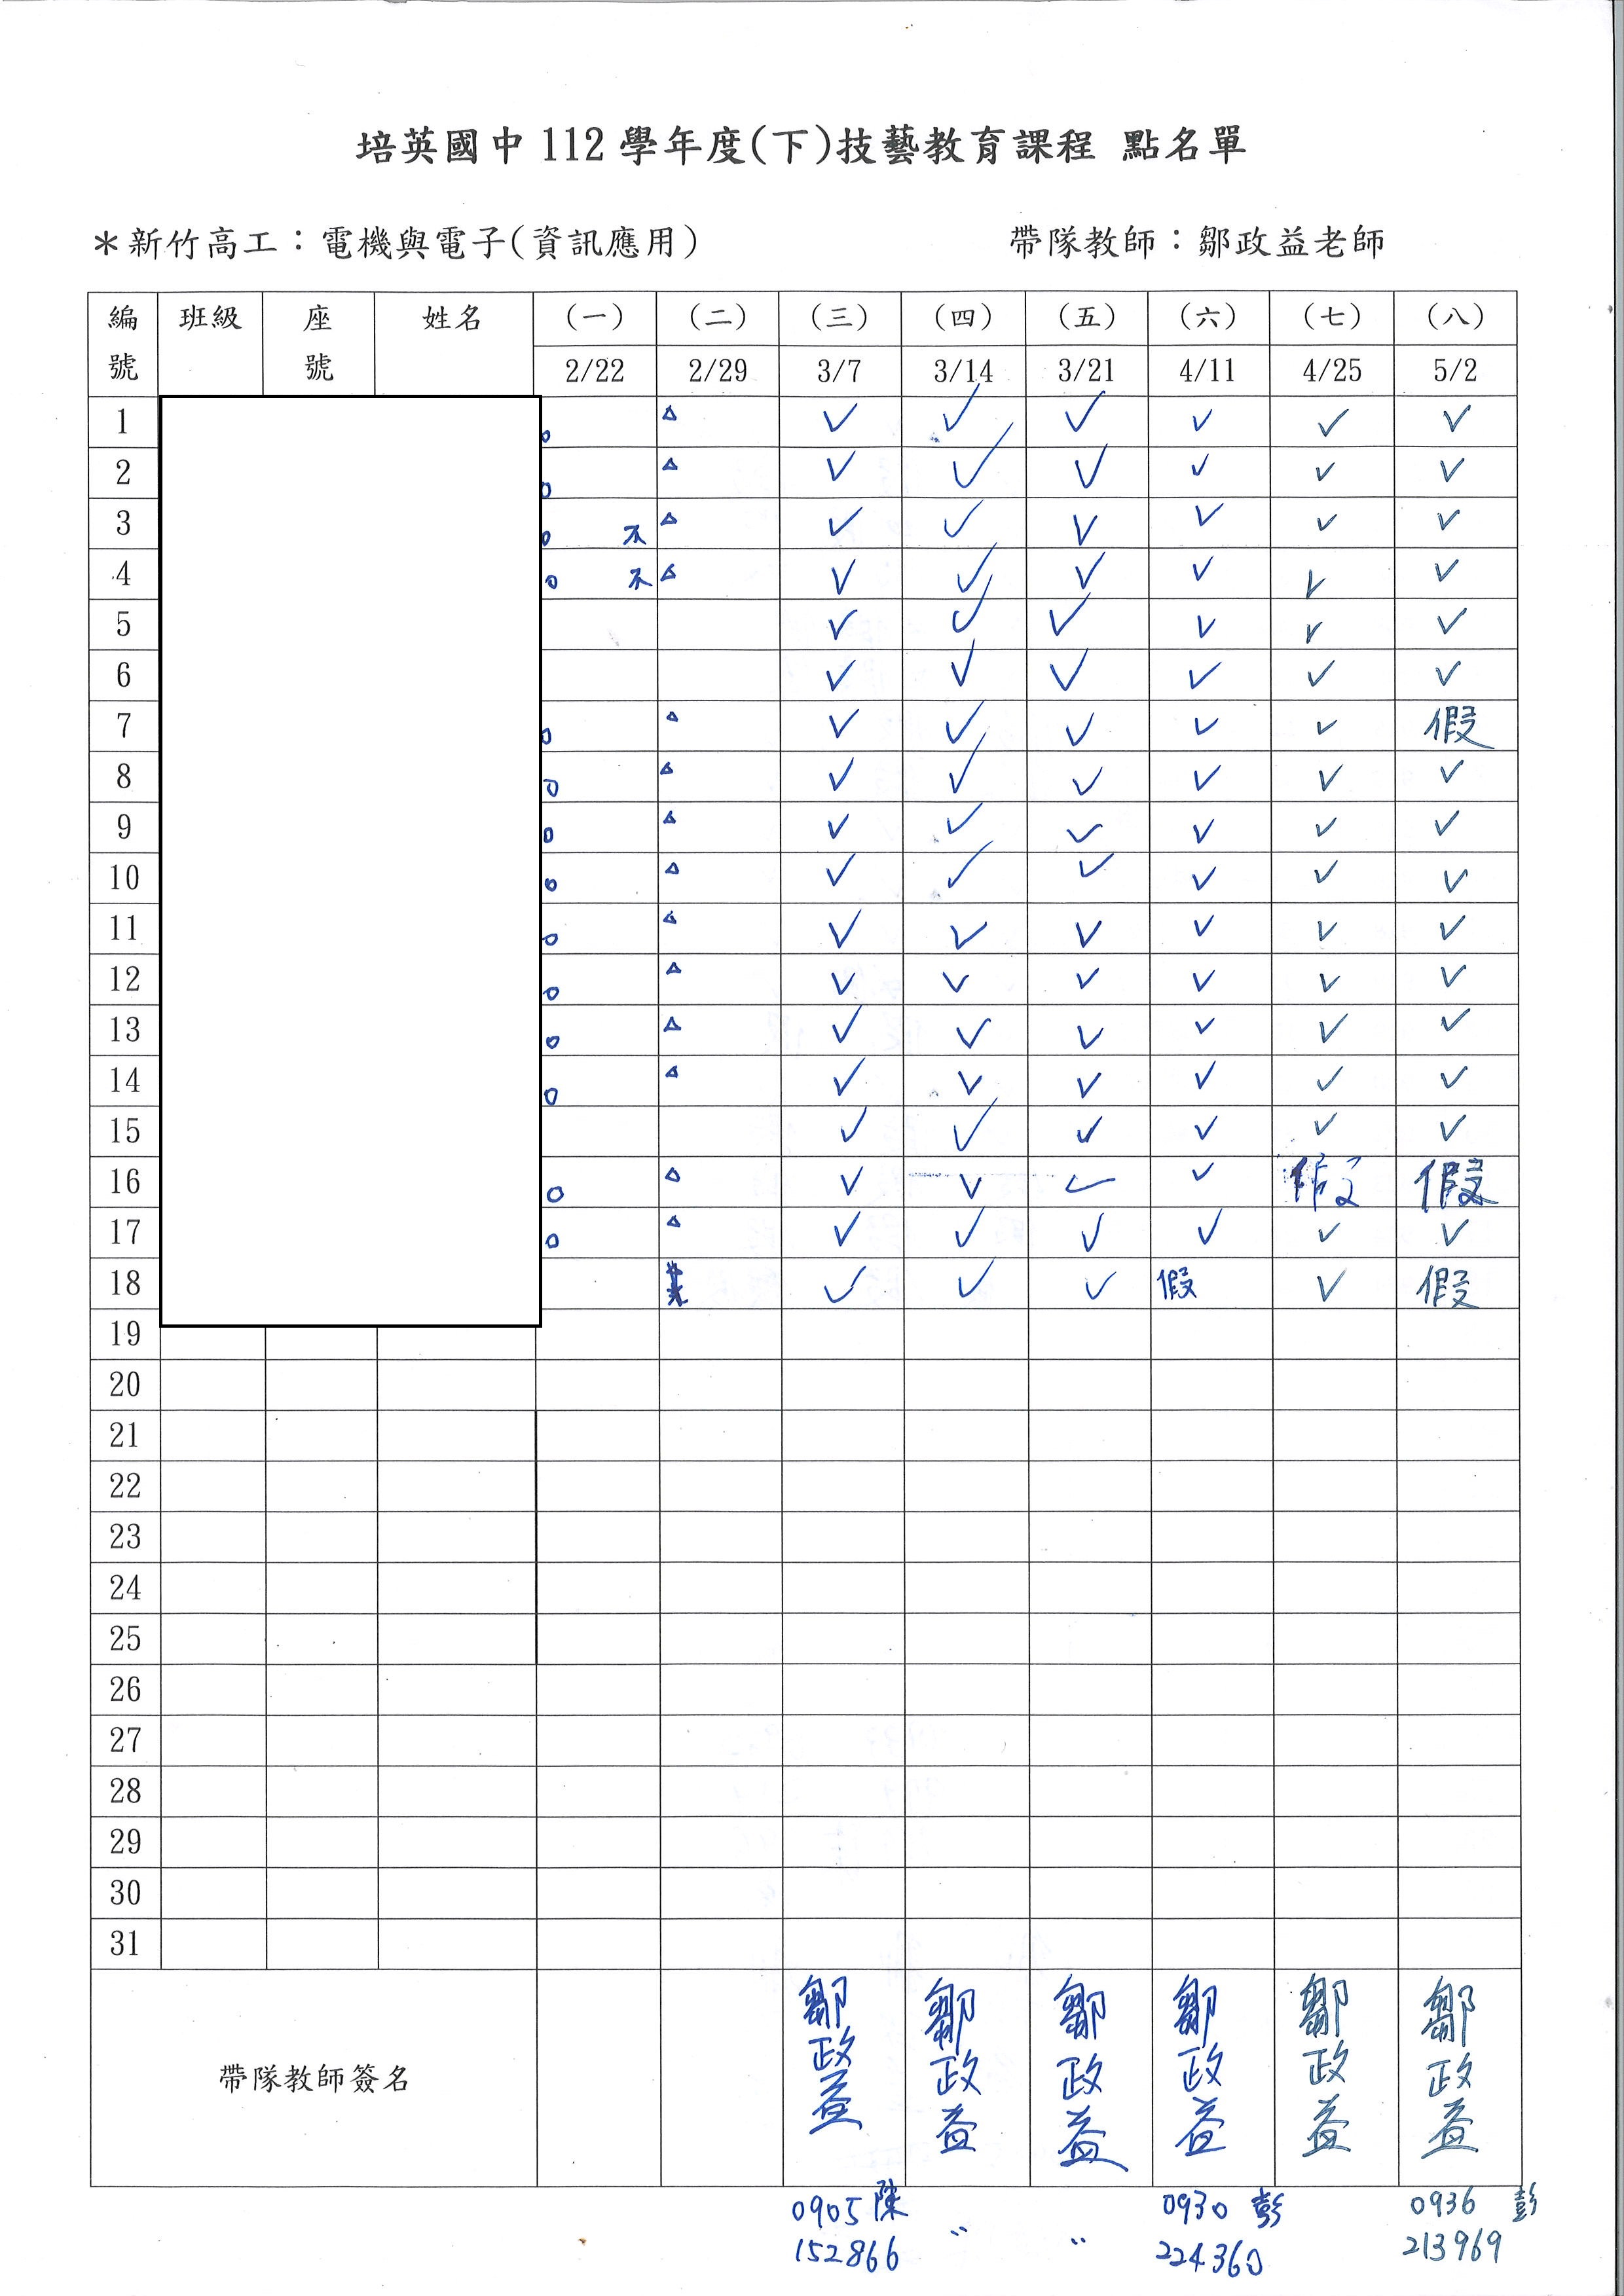 培英國中 112 學年度(下)技藝教育課程 點名單
＊新竹高工：電機與電子(資訊應用) 帶隊教師：鄒政益老師
編號 班級 座號 姓名 (一) (二) (三) (四) (五) (六) (七) (八)
2/22 2/29 3/7 3/14 3/21 4/11 4/25 5/2
1 o △ ✓ ✓ ✓ ✓ ✓ ✓
2 o △ ✓ ✓ ✓ ✓ ✓ ✓
3 o 不 △ ✓ ✓ ✓ ✓ ✓ ✓
4 o 不 △ ✓ ✓ ✓ ✓ ✓ ✓
5 ✓ ✓ ✓ ✓ ✓ ✓
6 ✓ ✓ ✓ ✓ ✓ ✓
7 o △ ✓ ✓ ✓ ✓ ✓ 假
8 o △ ✓ ✓ ✓ ✓ ✓ ✓
9 o △ ✓ ✓ ✓ ✓ ✓ ✓
10 o △ ✓ ✓ ✓ ✓ ✓ ✓
11 o △ ✓ ✓ ✓ ✓ ✓ ✓
12 o △ ✓ ✓ ✓ ✓ ✓ ✓
13 o △ ✓ ✓ ✓ ✓ ✓ ✓
14 o △ ✓ ✓ ✓ ✓ ✓ ✓
15 ✓ ✓ ✓ ✓ ✓ ✓
16 o △ ✓ ✓ ✓ ✓ 假 假
17 o △ ✓ ✓ ✓ ✓ ✓ ✓
18 ✓ ✓ ✓ 假 ✓ 假
19
20
21
22
23
24
25
26
27
28
29
30
31
帶隊教師簽名 鄒政益 鄒政益 鄒政益 鄒政益 鄒政益 鄒政益
0905 陳 〃 〃 0930 彭 0936 彭
152866 224360 213969